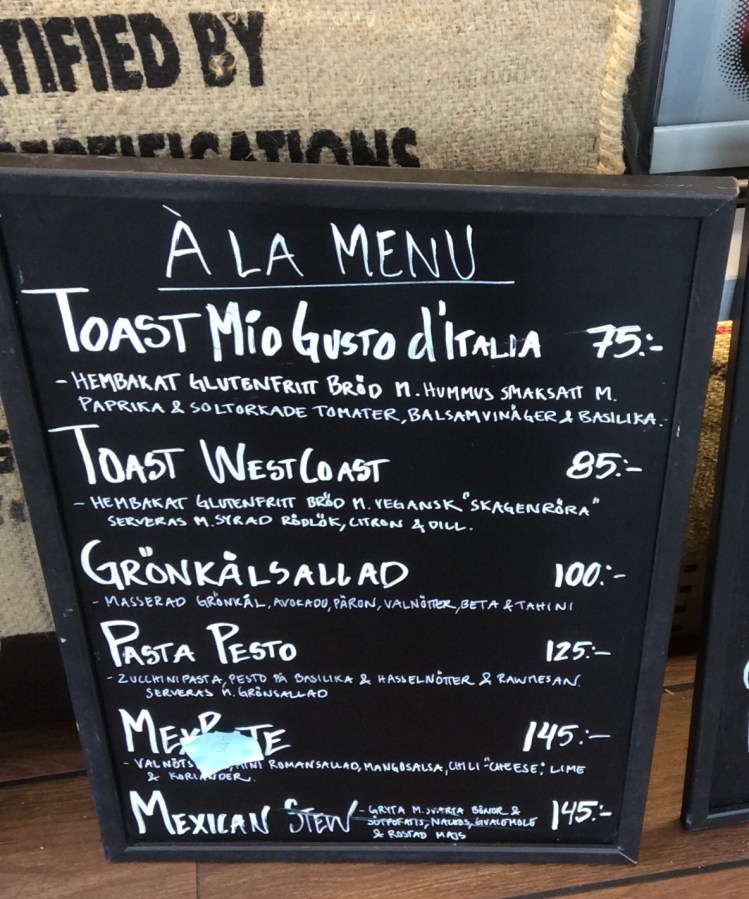 TIFIED BY
À LA MENU
TOAST MIO GUSTO d'ITALIA 75:-
- HEMBAKAT GLUTENFRITT BRÖD M. HUMMUS SMAKSATT M.
PAPRIKA & SOLTORKADE TOMATER, BALSAMVINÄGER & BASILIKA.
TOAST WESTCOAST 85:-
- HEMBAKAT GLUTENFRITT BRÖD M. VEGANSK "SKAGENRÖRA"
SERVERAS M. SYRAD RÖDLÖK, CITRON & DILL.
GRÖNKÅLSALLAD 100:-
- MASSERAD GRÖNKÅL, AVOKADO, PÄRON, VALNÖTTER, BETA & TAHINI
PASTA PESTO 125:-
- ZUCCHINIPASTA, PESTO PÅ BASILIKA & HASSELNÖTTER & RAWMESAN.
SERVERAS M. GRÖNSALLAD
145:-
- VALNÖTS ROMANSALLAD, MANGOSALSA, CHILI-"CHEESE", LIME
& KORIANDER.
MEXICAN STEW - GRYTA M. SVARTA BÖNOR & 145:-
SÖTPOTATIS, NACHOS, GUACEMOLE
& ROSTAD MAJS